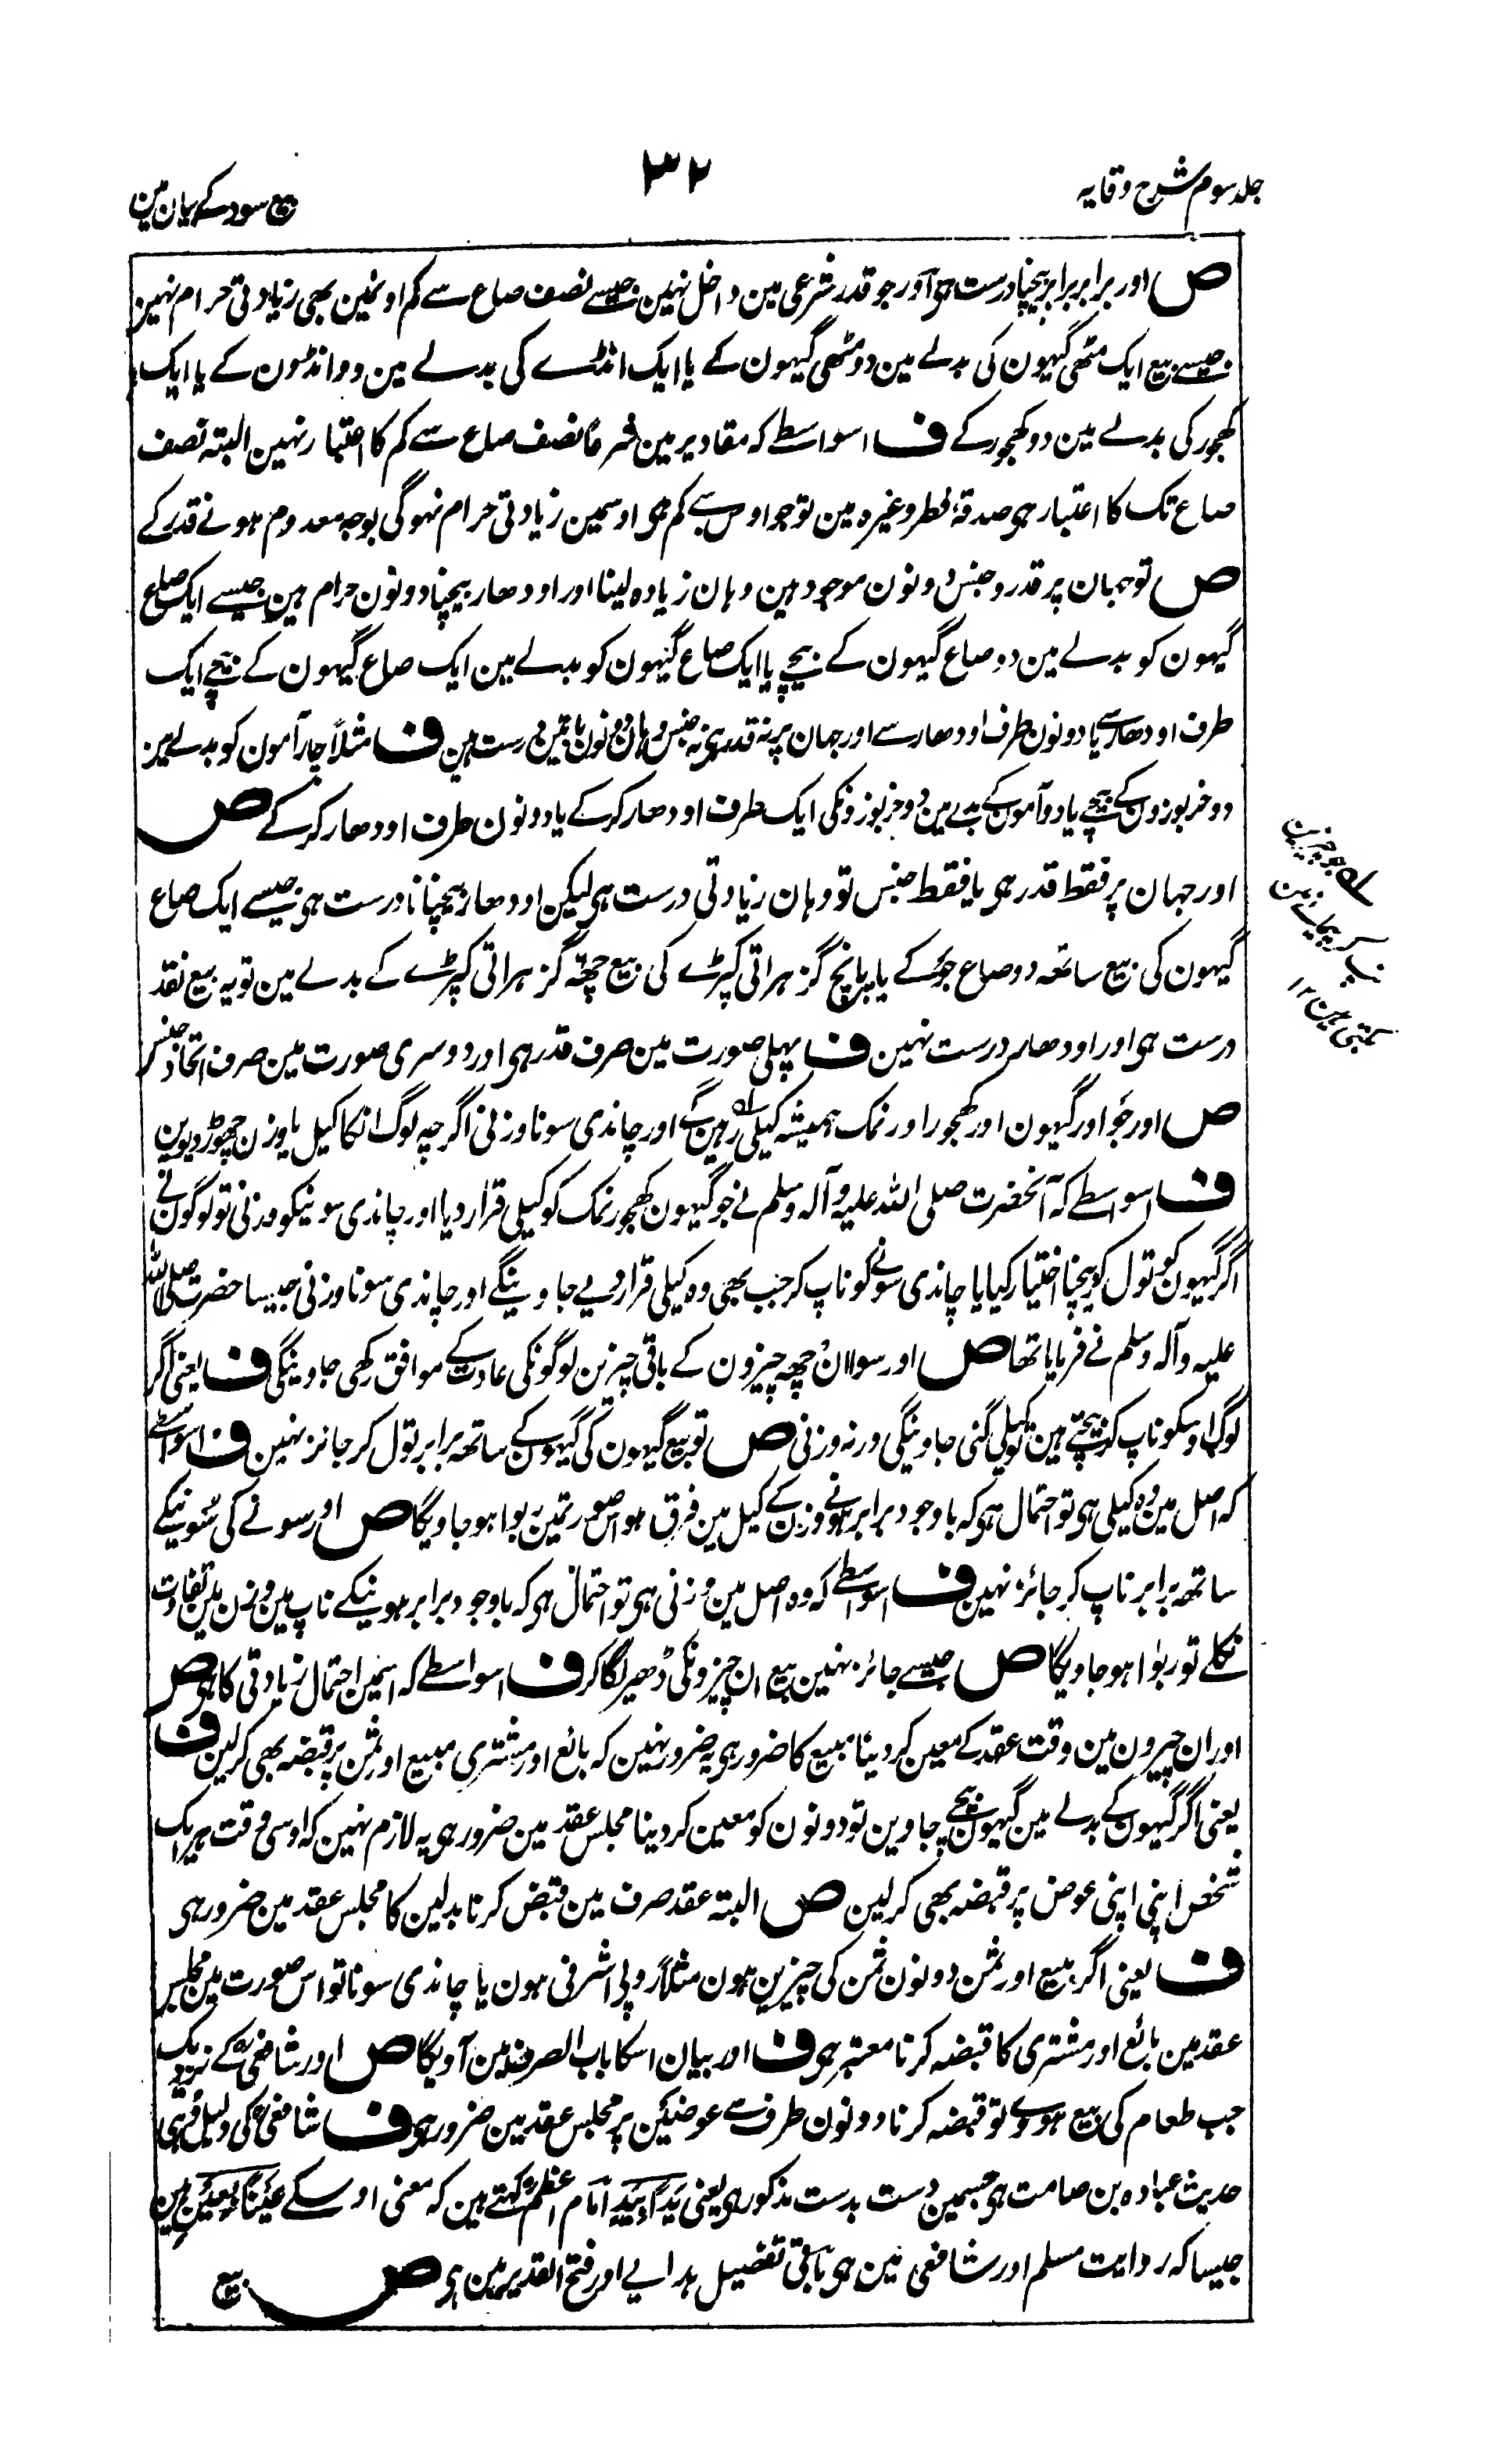 جلد سوم شرح وقایہ
۳۲
بیع سود کے بیان مین
ص اور برابر برابر بیچنا درست ہی اور جو قدر شرعی مین داخل نہین جیسے نصف صاع سے کم اوسمین بھی زیادتی حرام نہین
جیسے بیع ایک مٹھی گیہون کی بدلے مین دو مٹھی گیہون کے یا ایک انڈے کی بدلے مین دو انڈون کے یا ایک
کھجور کی بدلے مین دو کھجور کے ف اسواسطے کہ مقادیر مین شرعاً نصف صاع سے کم کا اعتبار نہین البتہ نصف
صاع تک کا اعتبار ہی صدقۂ فطر وغیرہ مین تو جو اوس سے کم ہی اوسمین زیادتی حرام نہوگی بوجہ معدوم ہونے قدر کے
ص تو جہان پر قدر و جنس دونون موجود ہین وہان زیادہ لینا اور اودھار بیچنا دونون حرام ہین جیسے ایک صاع
گیہون کو بدلے مین دو صاع گیہون کے بیچے یا ایک صاع گیہون کو بدلے مین ایک صاع گیہون کے بیچے ایک
طرف اودھار سے یا دونون طرف اودھار سے اور جہان پر نہ قدر ہی نہ جنس وہان دونون باتین درست ہین ف مثلاً چار آمون کو بدلے مین
دو خربوزون کے بیچے یا دو آمون کے بدلے مین دو خربوزونکی ایک طرف اودھار کر کے یا دونون طرف اودھار کر کے ص
اور جہان پر فقط قدر ہی یا فقط جنس تو وہان زیادتی درست ہی لیکن اودھار بیچنا نادرست ہی جیسے ایک صاع
گیہون کی بیع ساتھہ دو صاع جَو کے یا پانچ گز ہراتی کپڑے کی بیع چھہ گز ہراتی کپڑے کے بدلے مین تو یہ بیع نقد
درست ہی اور اودھار درست نہین ف پہلی صورت مین صرف قدر ہی اور دوسری صورت مین صرف اتحاد جنس
ص اور جَو اور گیہون اور کھجور اور نمک ہمیشہ کیلی رہین گے اور چاندی سونا وزنی اگرچہ لوگ انکا کیل یا وزن چھوڑ دیوین
ف اسواسطے کہ آنحضرت صلی اللہ علیہ وآلہ وسلم نے جو گیہون کھجور نمک کو کیلی قرار دیا اور چاندی سونیکو وزنی تو لوگون نے
اگر گیہون کو تول کو بیچنا اختیار کیا یا چاندی سونے کو ناپ کر جب بھی وہ کیلی قرار دیے جاوینگے اور چاندی سونا وزنی جیسا حضرت صلی اللہ
علیہ وآلہ وسلم نے فرمایا تھا ص اور سوا ان چھہ چیزون کے باقی چیزین لوگونکی عادت کے موافق رکھی جاوینگی ف یعنی اگر
لوگ اوسکو ناپ کر بیچتے ہین تو کیلی گنی جاوینگی ورنہ وزنی ص تو بیع گیہون کی گیہون کے ساتھہ برابر تول کر جائز نہین ف اسواسطے
کہ اصل مین وہ کیلی ہی تو احتمال ہی کہ باوجود برابر ہونے وزن کے کیل مین فرق ہو اس صورتمین ربوا ہو جاویگا ص اور سونے کی سونیکے
ساتھہ برابر ناپ کر جائز نہین ف اسواسطے کہ وہ اصل مین وزنی ہی تو احتمال ہی کہ باوجود برابر ہونیکے ناپ مین وزن مین تفاوت
نکلے تو ربوا ہو جاویگا ص جیسے جائز نہین بیع ان چیزونکی ڈھیر لگا کر ف اسواسطے کہ اسمین احتمال زیادتی کا ہی ص
اور ان چیزون مین وقت عقد کے معین کر دینا مبیع کا ضرور ہی یہ ضرور نہین کہ بائع اور مشتری مبیع اور ثمن پر قبضہ بھی کر لین ف
یعنی اگر گیہون کے بدلے مین گیہون بیچے جاوین تو دونون کو معین کر دینا مجلس عقد مین ضرور ہی یہ لازم نہین کہ اوسی وقت ہر ایک
شخص اپنی اپنی عوض پر قبضہ بھی کر لین ص البتہ عقد صرف مین قبض کرنا بدلین کا مجلس عقد مین ضرور ہی
ف یعنی اگر مبیع اور ثمن دونون ثمن کی چیزین ہون مثلاً روپی اشرفی ہون یا چاندی سونا تو اس صورت مین مجلس
عقد مین بائع اور مشتری کا قبضہ کرنا معتبر ہی ف اور بیان اسکا باب الصرف مین آویگا ص اور شافعی کے نزدیک
جب طعام کی بیع ہووے تو قبضہ کرنا دونون طرف سے عوضین پر مجلس عقد مین ضرور ہی ف شافعی کی دلیل وہی
حدیث عبادہ بن صامت ہی جسمین دست بدست مذکور ہی یعنی یداً بید امام اعظم کہتے ہین کہ معنی اوسکے عیناً بعین ہین
جیسا کہ روایت مسلم اور شافعی مین ہی باقی تفصیل ہدایے اور فتح القدیر مین ہی ص
بیع
لہ جو چیزین
کر پیمانے مین
بکتی ہین ۱۲